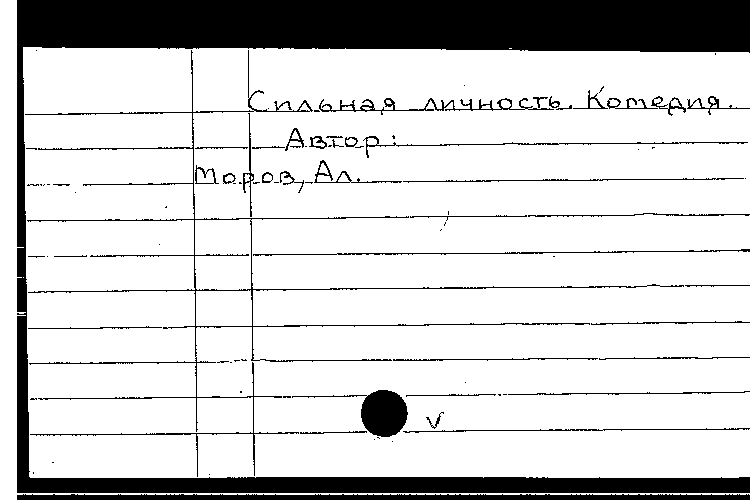 Сильная личность. Комедия.
Автор:
Моров, Ал.
V